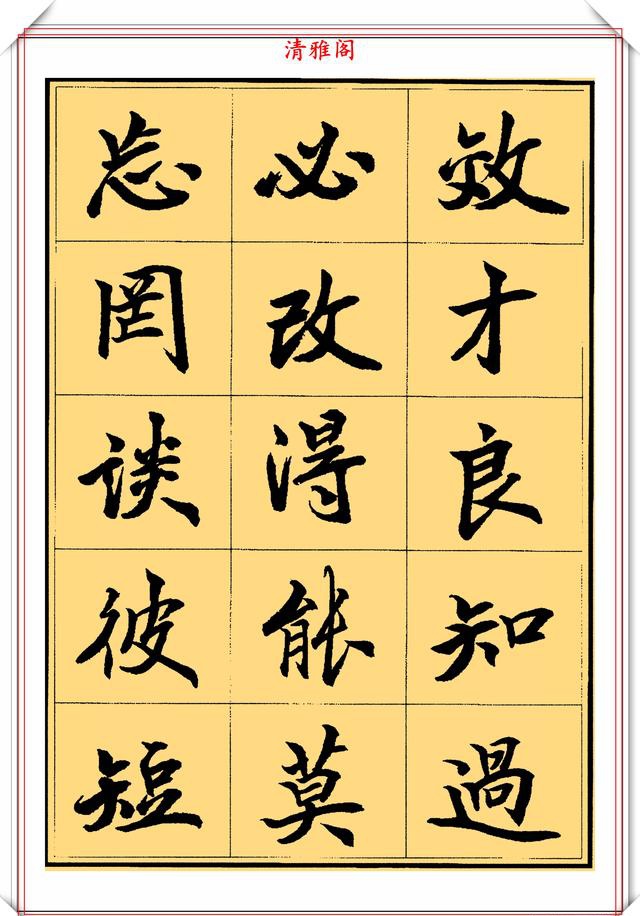 清雅阁
效才良知過
必改得能莫
忘罔談彼短